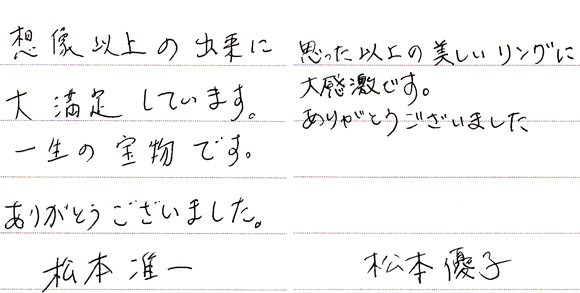 想像以上の出来に
大満足しています。
一生の宝物です。
ありがとうございました。
松本准一
思った以上の美しいリングに
大感激です。
ありがとうございました
松本優子